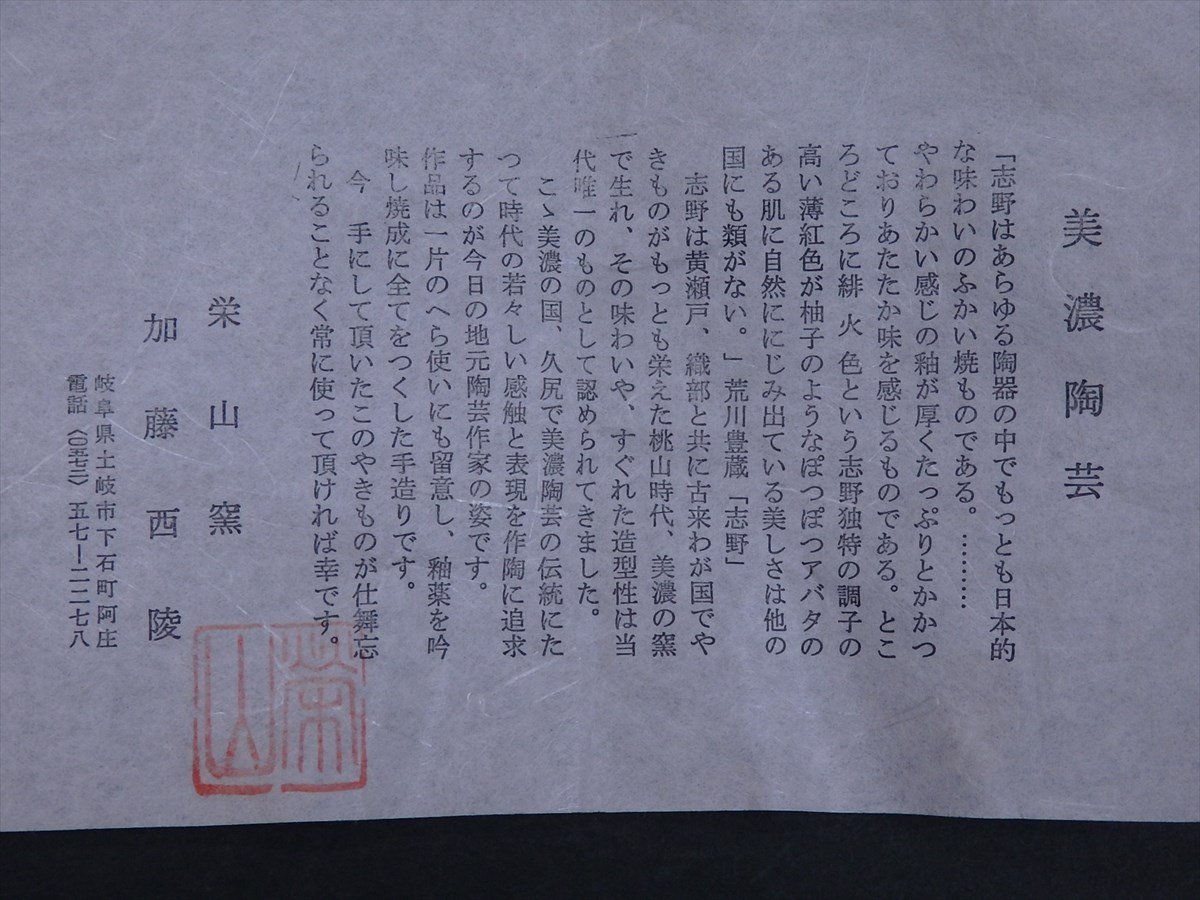 美濃陶芸
「志野はあらゆる陶器の中でもっとも日本的
な味わいのふかい焼ものである。………
やわらかい感じの釉が厚くたっぷりとかかつ
ておりあたたか味を感じるものである。とこ
ろどころに緋 火 色という志野独特の調子の
高い薄紅色が柚子のようなぽつぽつアバタの
ある肌に自然ににじみ出ている美しさは他の
国にも類がない。」荒川豊蔵「志野」
志野は黄瀬戸、織部と共に古来わが国でや
きものがもっとも栄えた桃山時代、美濃の窯
で生れ、その味わいや、すぐれた造型性は当
代唯一のものとして認められてきました。
こゝ美濃の国、久尻で美濃陶芸の伝統にた
つて時代の若々しい感触と表現を作陶に追求
するのが今日の地元陶芸作家の姿です。
作品は一片のへら使いにも留意し、釉薬を吟
味し焼成に全てをつくした手造りです。
今 手にして頂いたこのやきものが仕舞忘
られることなく常に使って頂ければ幸です。
栄山窯
加藤西陵
岐阜県土岐市下石町阿庄
電話〈〇五七二〉五七ー二二七八
栄山